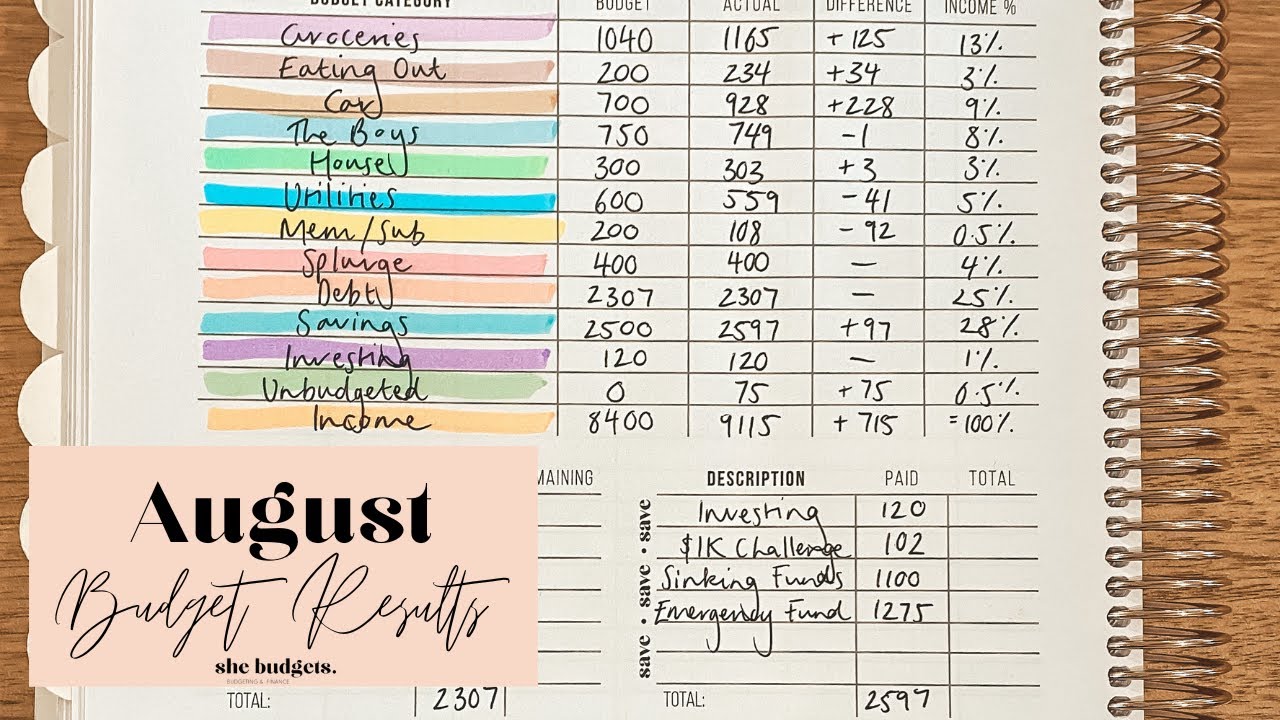 BUDGET CATEGORY BUDGET ACTUAL DIFFERENCE INCOME %
Groceries 1040 1165 +125 13%
Eating Out 200 234 +34 3%
Car 700 928 +228 9%
The Boys 750 749 -1 8%
House 300 303 +3 3%
Utilities 600 559 -41 5%
Mem/Sub 200 108 -92 0.5%
Splurge 400 400 — 4%
Debt 2307 2307 — 25%
Savings 2500 2597 +97 28%
Investing 120 120 — 1%
Unbudgeted 0 75 +75 0.5%
Income 8400 9115 +715 =100%
MAINING
TOTAL: 2307
save • save • save
DESCRIPTION PAID TOTAL
Investing 120
$1K Challenge 102
Sinking Funds 1100
Emergency Fund 1275
TOTAL: 2597
August
Budget Results
she budgets.
BUDGETING & FINANCE